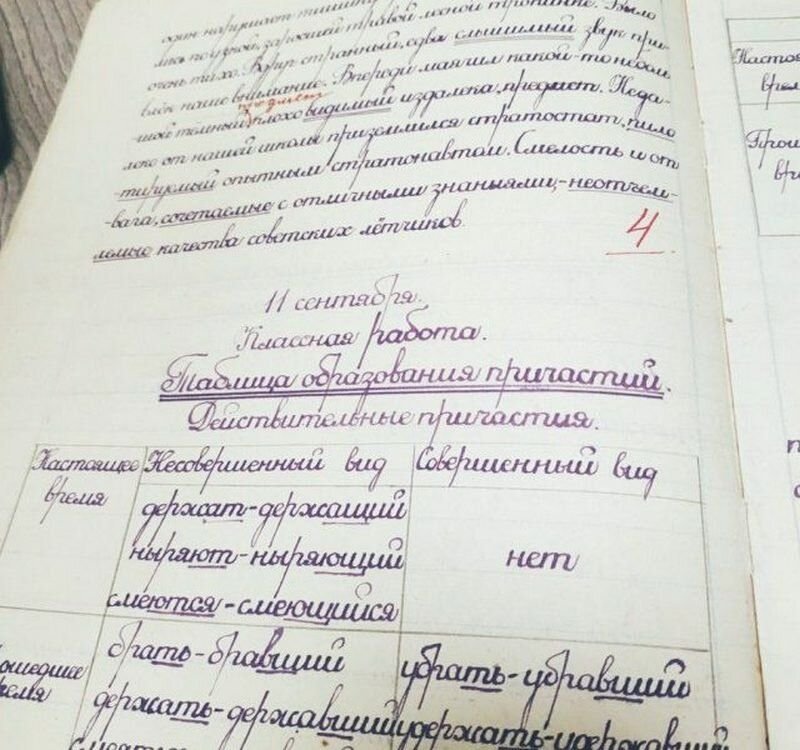 один нарушает тишину
лись по узкой, заросшей травой лесной тропинке. Было
очень тихо. Вдруг странный, едва слышимый звук при-
влёк наше внимание. Впереди маячил какой-то неболь
предмет
-шой тёмный, плохо видимый издалека, предмет. Неда-
леко от нашей школы приземлился стратостат, пило
-тируемый опытным стратонавтом. Смелость и от
-вага, сочетаемые с отличными знаниями, - неотъем-
лемые качества советских лётчиков.
4
11 сентября.
Классная работа.
Таблица образования причастий.
Действительные причастия.
Настоящее время
Несовершенный вид
Совершенный вид
держат-держащий
ныряют-ныряющий
смеются-смеющийся
нет
ошедшее
ремя
брать-бравший
держать-державший
убрать-убравший
удержать-удержавший
Настоя
врем
Прош
вре